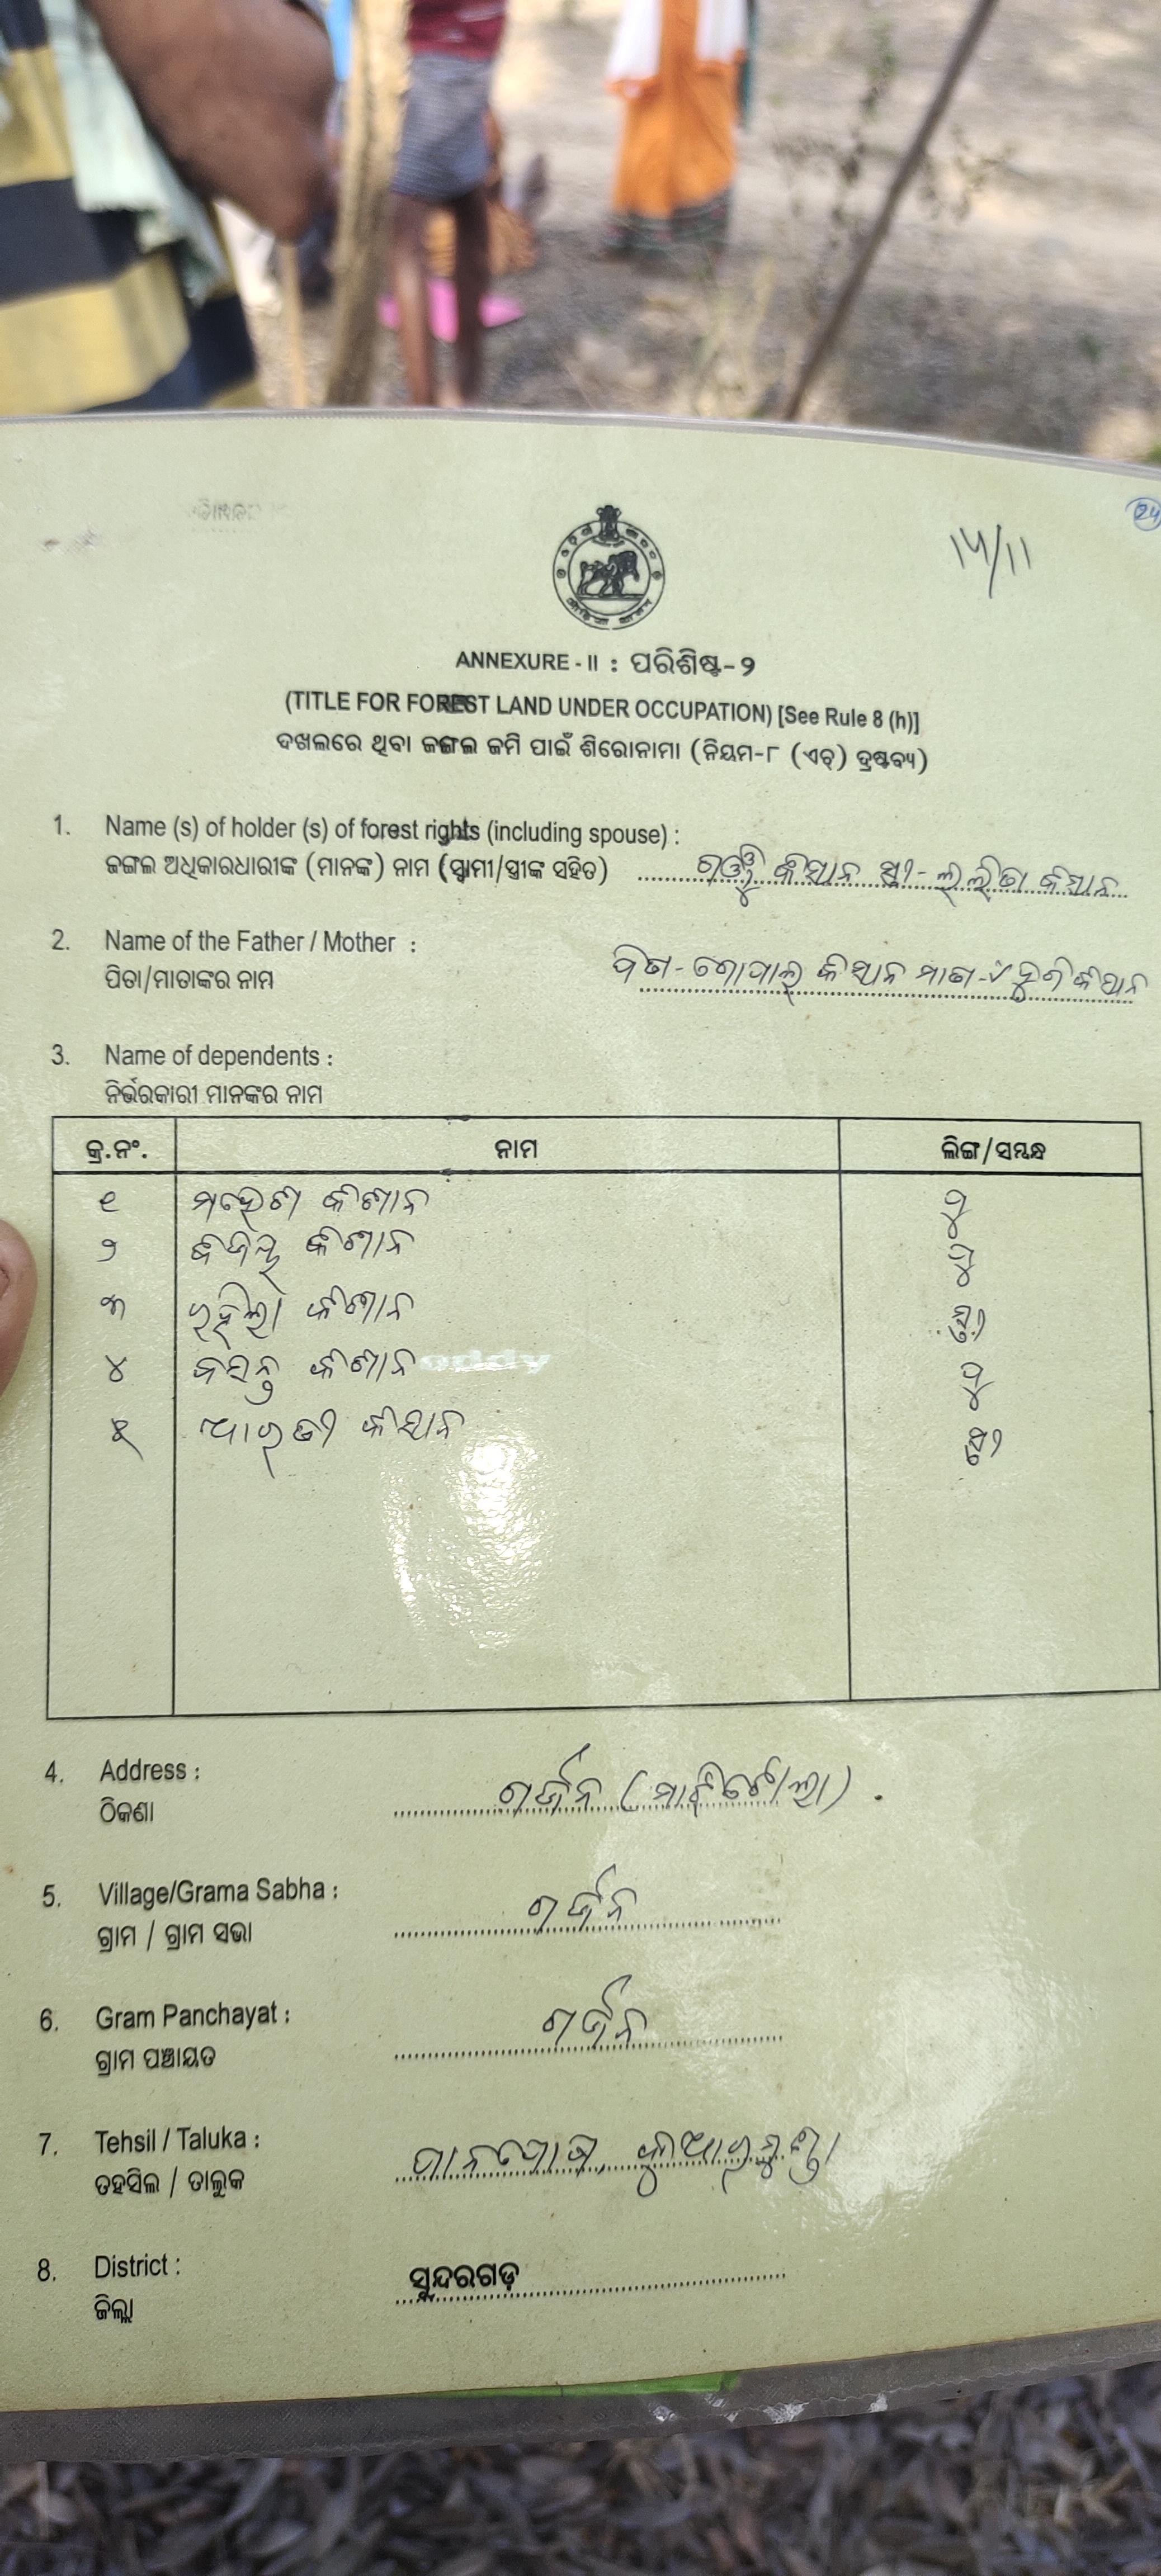 ୧୫/୧୧
ANNEXURE - II : ପରିଶିଷ୍ଟ-୨
(TITLE FOR FOREST LAND UNDER OCCUPATION) [See Rule 8 (h)]
ଦଖଲରେ ଥିବା ଜଙ୍ଗଲ ଜମି ପାଇଁ ଶିରୋନାମା (ନିୟମ-୮ (ଏଚ୍) ଦ୍ରଷ୍ଟବ୍ୟ)
1. Name (s) of holder (s) of forest rights (including spouse) :
ଜଙ୍ଗଲ ଅଧିକାରଧାରୀଙ୍କ (ମାନଙ୍କ) ନାମ (ସ୍ୱାମୀ/ସ୍ତ୍ରୀଙ୍କ ସହିତ) କିସାନ ସ୍ତ୍ରୀ- ଲଲିତା କିସାନ
2. Name of the Father / Mother :
ପିତା/ମାତାଙ୍କର ନାମ ପିତା- ଗୋପାଲ କିସାନ ମାତା-
3. Name of dependents :
ନିର୍ଭରକାରୀ ମାନଙ୍କର ନାମ
କ୍ର.ନଂ. ନାମ ଲିଙ୍ଗ/ସମ୍ବନ୍ଧ
୧ ମହେଶ କିଶାନ ପୁ
୨ କିଶାନ ପୁ
୩ କିଶାନ ସ୍ତ୍ରୀ
୪ ବସନ୍ତ କିଶାନ ପୁ
୫ ଆରତୀ କିସାନ ସ୍ତ୍ରୀ
4. Address :
ଠିକଣା ଗର୍ଜନ (ମାଝିଟୋଲା)
5. Village/Grama Sabha :
ଗ୍ରାମ / ଗ୍ରାମ ସଭା ଗର୍ଜନ
6. Gram Panchayat :
ଗ୍ରାମ ପଞ୍ଚାୟତ ଗର୍ଜନ
7. Tehsil / Taluka :
ତହସିଲ / ତାଲୁକ ପାନପୋଷ, କୁଆରମୁଣ୍ଡା
8. District :
ଜିଲ୍ଲା ସୁନ୍ଦରଗଡ଼